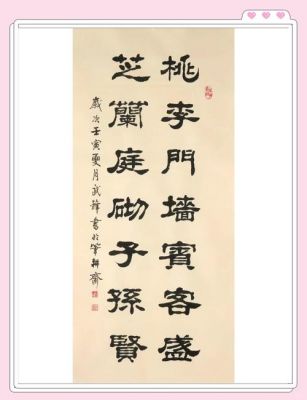 桃李門墻賓客盛
芝蘭庭砌子孫賢
歲次壬寅夏月武鋒書於筆耕齋